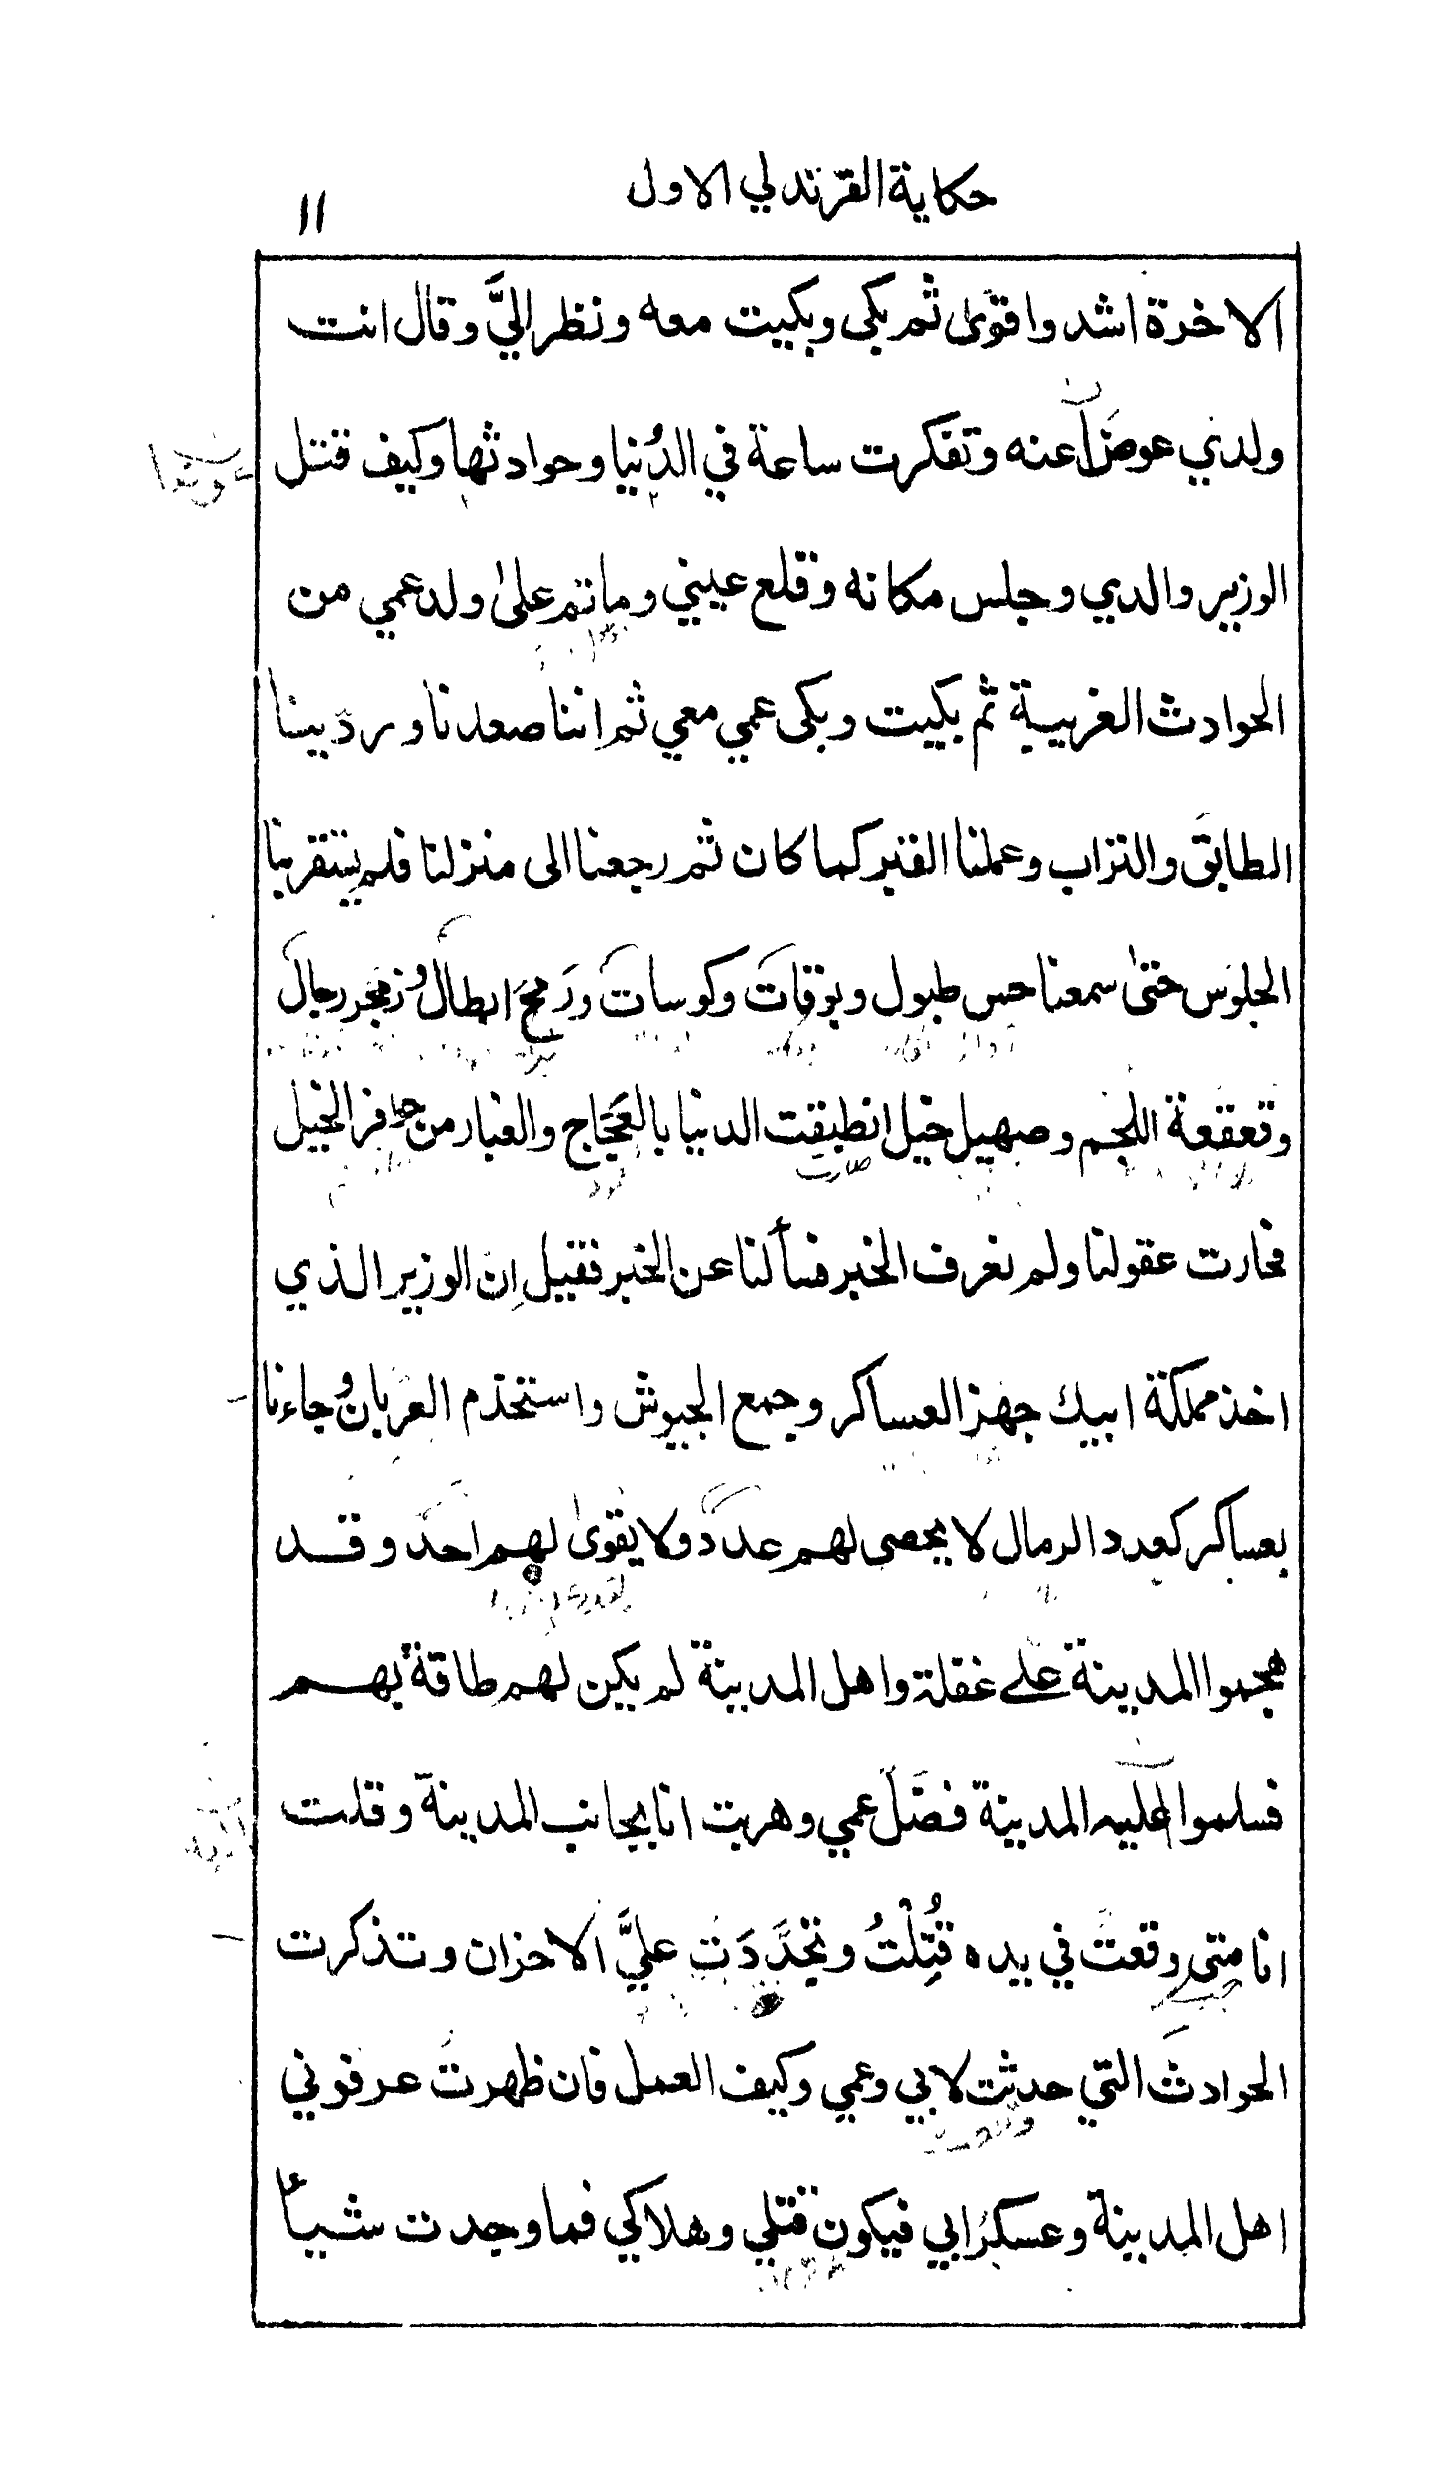 حكاية القرندلي الاول
١١
الاخرة اشد واقوىٰ ثم بكى وبكيت معه ونظر اليَّ وقال انت
ولدي عوضاً عنه وتفكرت ساعة في الدُنيا وحوادثها وكيف قتل
الوزير والدي وجلس مكانه وقلع عيني وما تم علىٰ ولد عمي من
الحوادث الغريبة ثم بكيت وبكى عمي معي ثم اننا صعدنا وردّينا
الطابق والتراب وعملنا القبر كما كان ثم رجعنا الى منزلنا فلم يستقر بنا
الجلوس حتىٰ سمعنا حس طبول وبوقات وكوسات ورَمحَ ابطال وزمجر رجال
وقعقعة اللجم وصهيل خيل انطبقت الدنيا بالعَجَاج والغبار من حوافر الخيل
فحارت عقولنا ولم نعرف الخبر فسألنا عن الخبر فقيل اِن الوزير الذي
اخذ مملكة ابيك جهز العساكر وجمع الجيوش واستخدم العربان وجاءنا
بعساكر كعدد الرمال لا يحصى لهم عدد ولا يقوىٰ لهم احد وقد
هجموا المدينة على غفلة واهل المدينة لم يكن لهم طاقة بهم
فسلموا اليه المدينة فضَلَّ عمي وهربت انا بجانب المدينة وقلت
انا متى وقعت في يده قُتِلْتُ وتجَدَّدَت عليَّ الاحزان وتذكرت
الحوادث التي حدثت لابي وعمي وكيف العمل فان ظهرت عرفوني
اهل المدينة وعسكر ابي فيكون قتلي وهلاكي فما وجدت شيأ
صارت